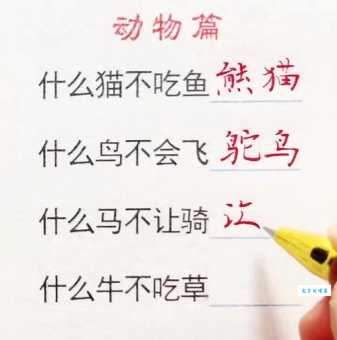 动物篇
什么猫不吃鱼熊猫
什么鸟不会飞鸵鸟
什么马不让骑
什么牛不吃草